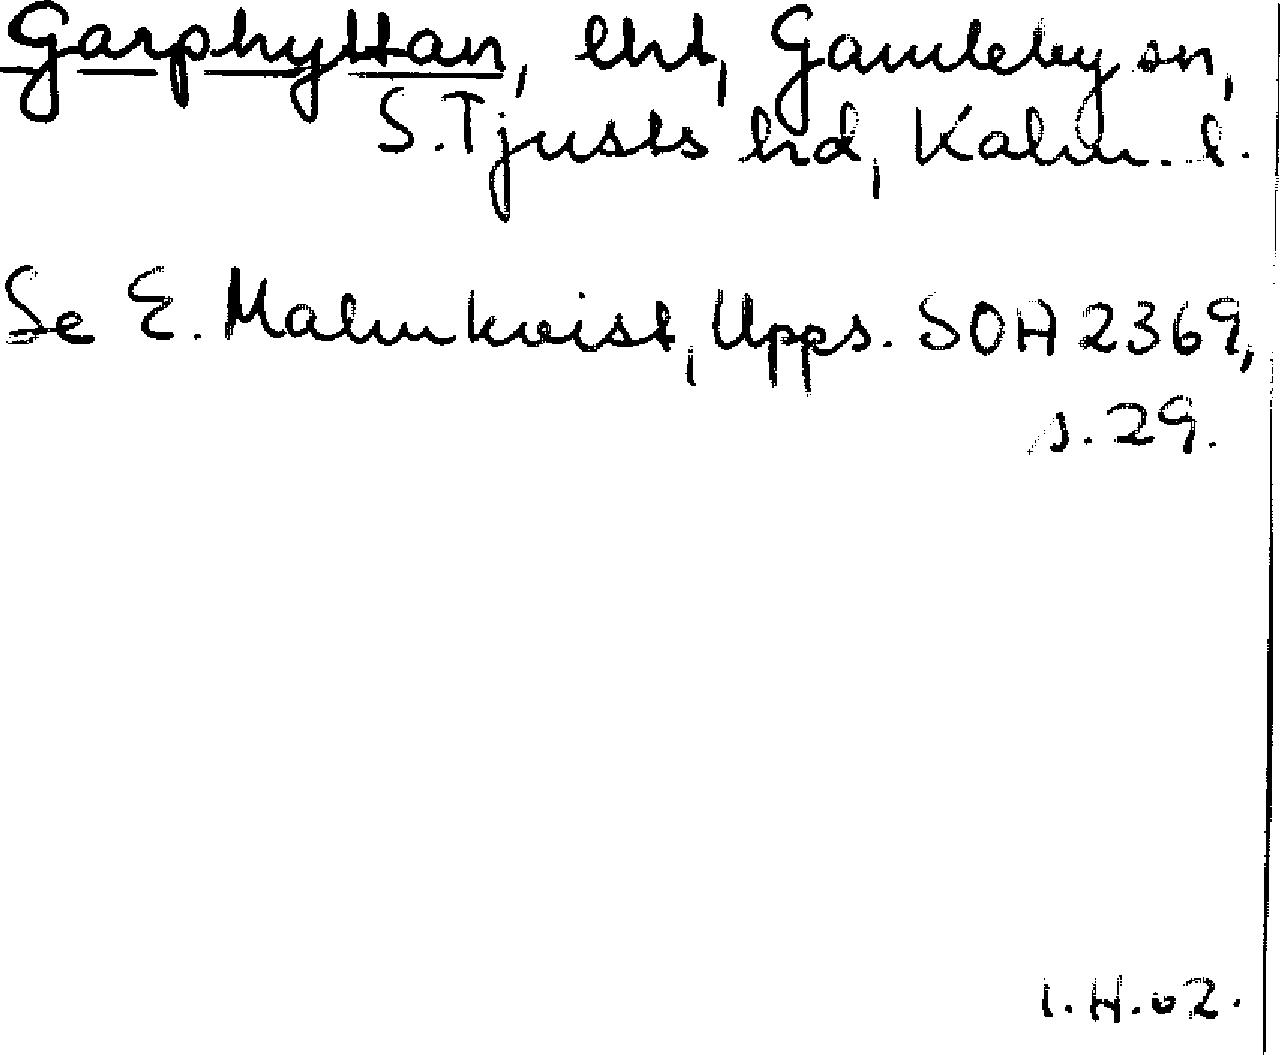 Garphyttan, lht, Gamleby sn,
S. Tjusts hd, Kalm. l.
Se E. Malmkvist, Upps. SOA 2369,
s. 29.
I.H.02.